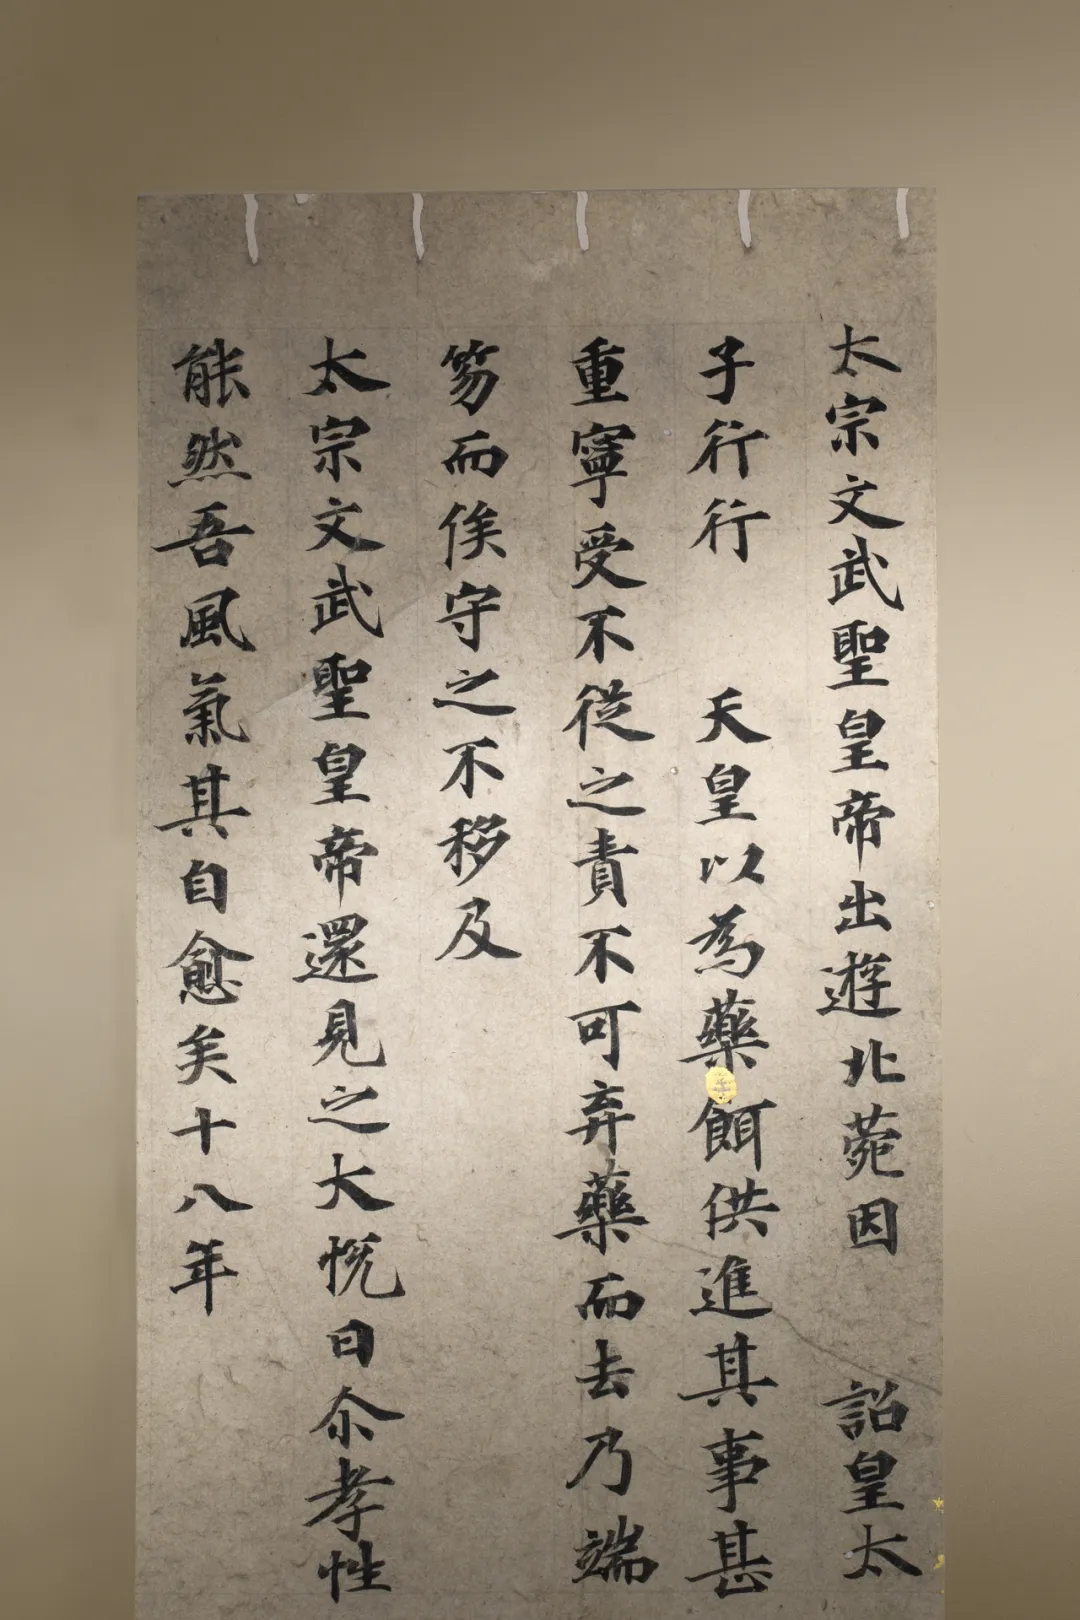 太宗文武聖皇帝出遊北菀因 詔皇太
子行行 天皇以為藥餌供進其事甚
重寧受不從之責不可弃藥而去乃端
笏而俟守之不移及
太宗文武聖皇帝還見之大悅曰尒孝性
能然吾風氣其自愈矣十八年